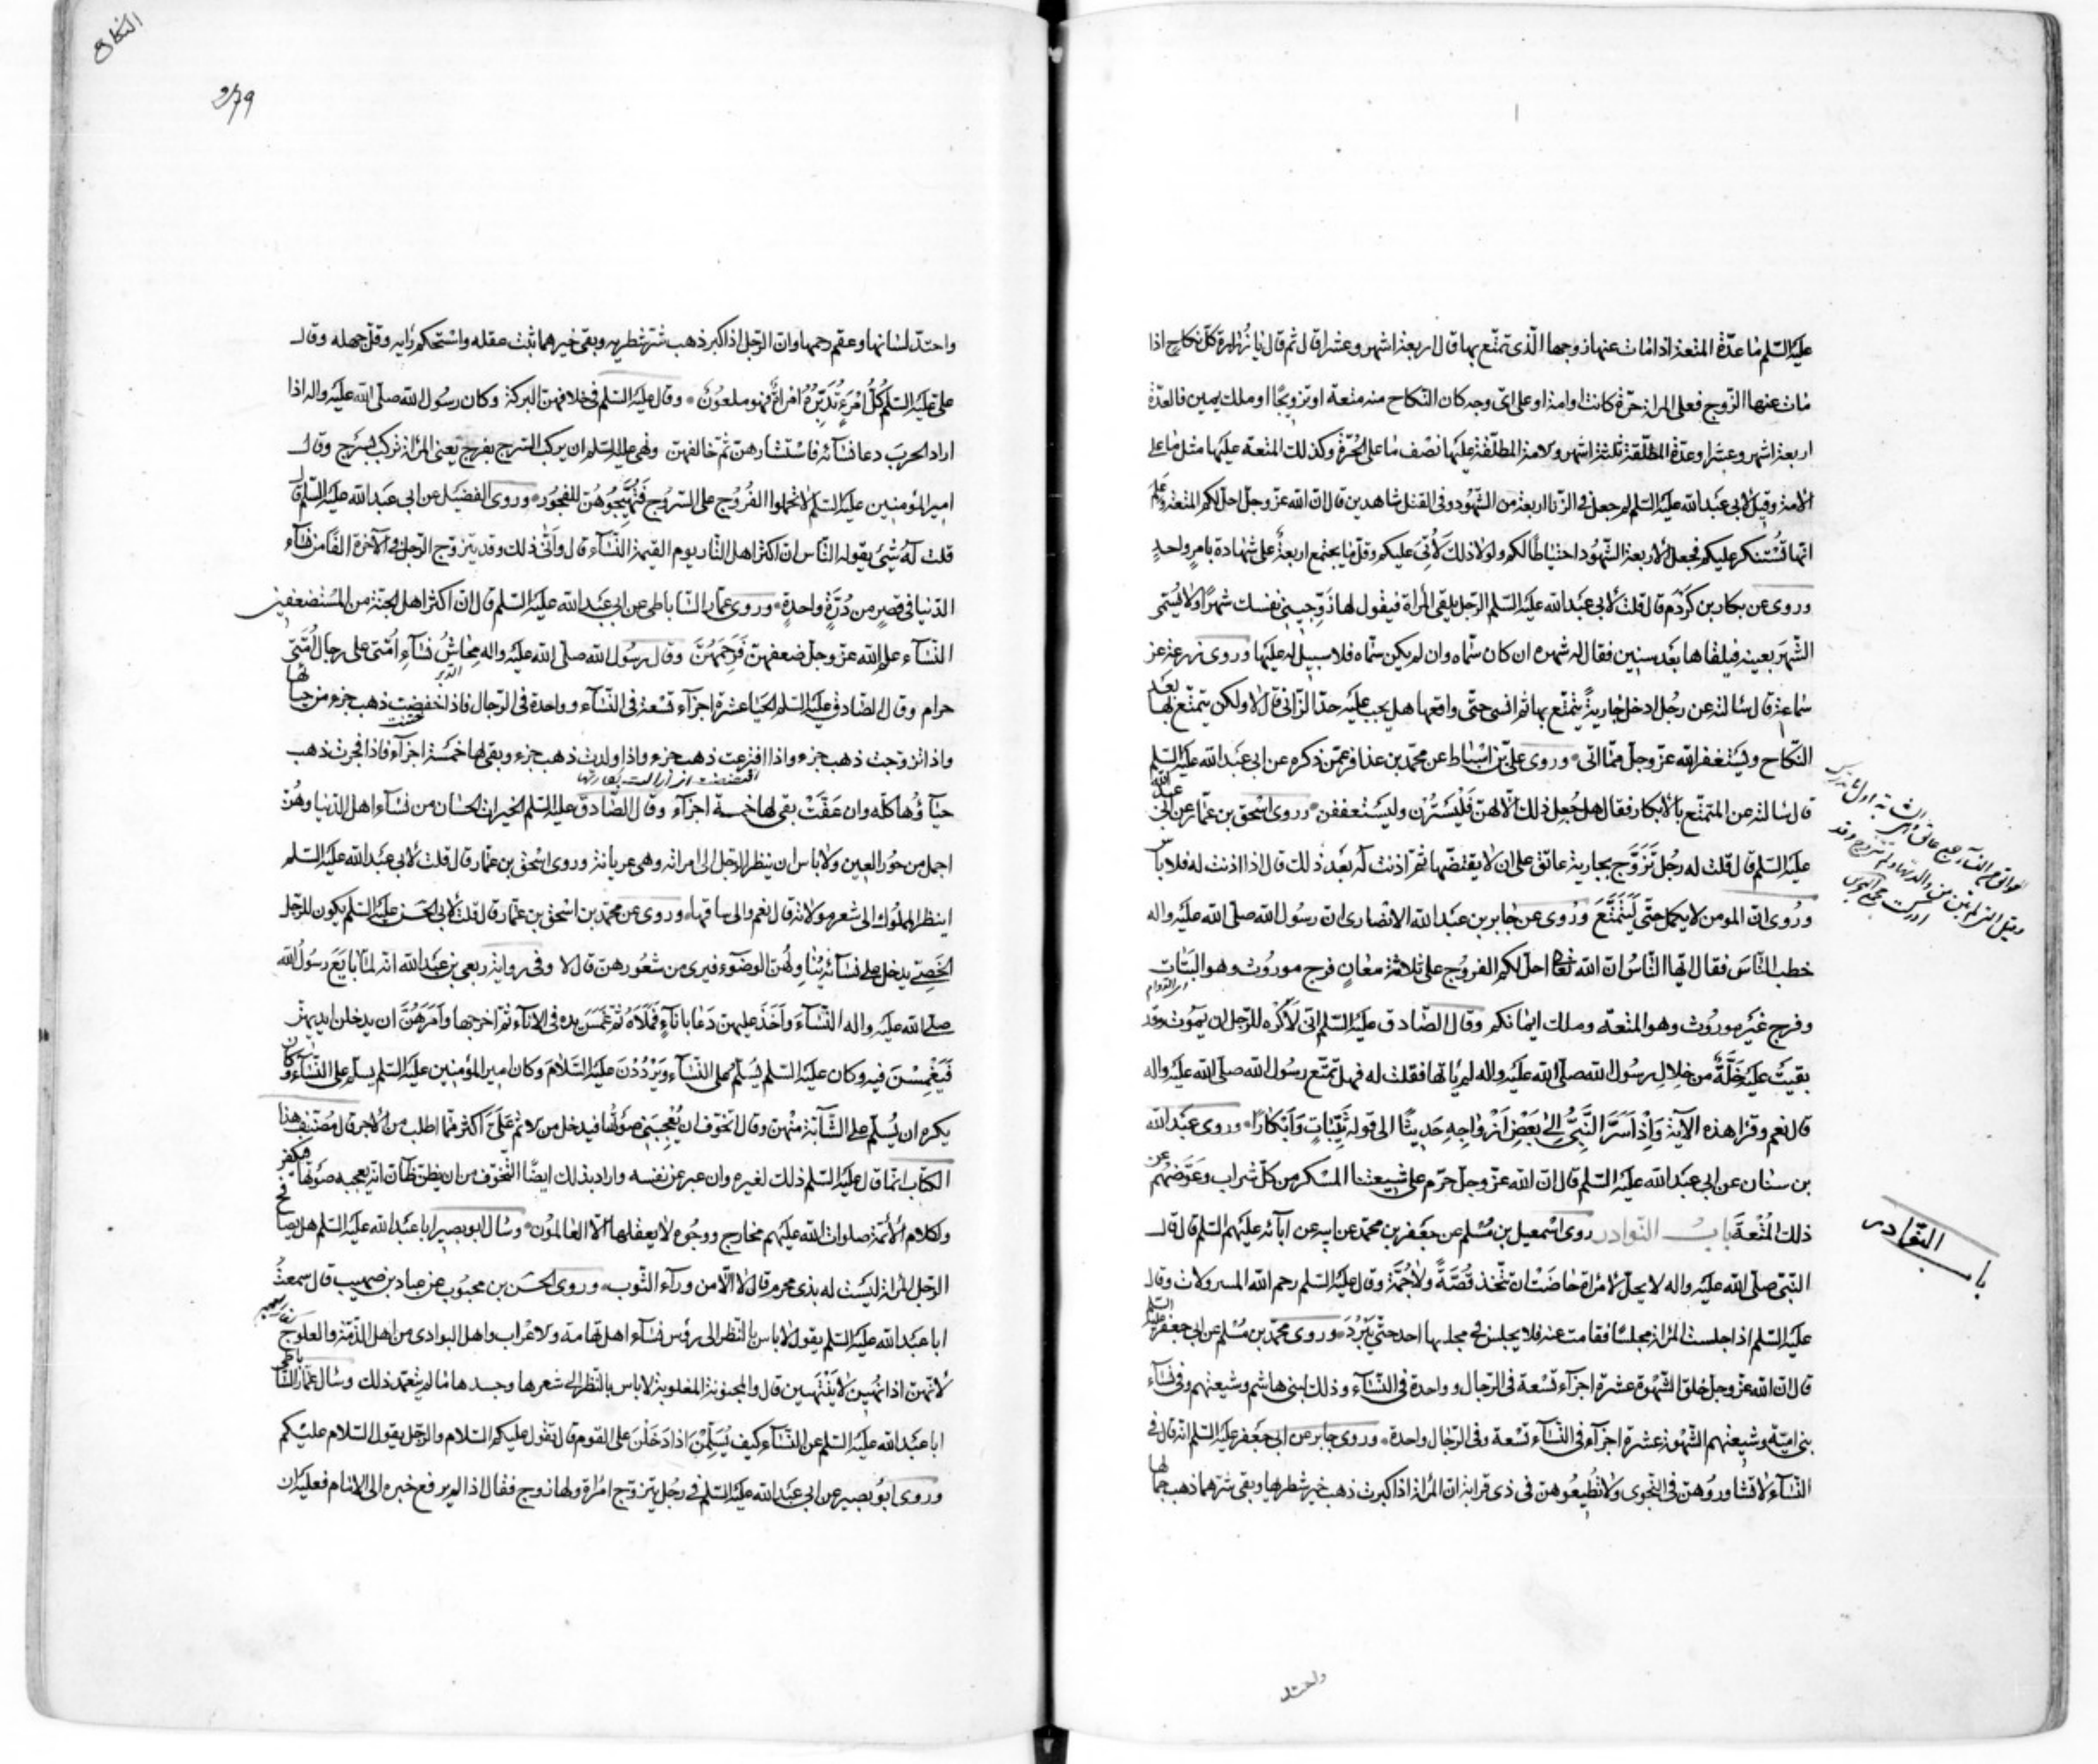 عليه السلم ما عدة المتعة اذا مات عنها زوجها الذى تمتع بها قال اربعة اشهر وعشرا قال ثم قال يا زرارة كل نكاح اذا
مات عنها الزوج فعلى المراة حرة كانت او امة او على اى وجه كان النكاح منه متعة او تزويجا او ملك يمين فالعدة
اربعة اشهر وعشرا وعدة المطلقة ثلثة اشهر والامة المطلقة عليها نصف ما على الحرة وكذلك المتعة عليها مثل ما على
الامة وقيل لابى عبد الله عليه السلم لم جعل فى الزنا اربعة من الشهود وفى القتل شاهدين قال ان الله عز وجل احل لكم المتعة وعلم
انها تستنكر عليكم فجعل الاربعة الشهود احتياطا لكم ولولا ذلك لاتى عليكم وقل ما يجتمع اربعة على شهادة بامر واحد
وروى عن بكار بن كردم قال قلت لابى عبد الله عليه السلم الرجل يلقى المراة فيقول لها زوجينى نفسك شهرا ولا يسمى
الشهر بعينه فيلقاها بعد سنين فقال له شهره ان كان سماه وان لم يكن سماه فلا سبيل له عليها وروى زرعة عن
سماعة قال سالته عن رجل ادخل جارية يتمتع بها ثم انسى حتى واقعها هل يجب عليه حد الزانى قال لا ولكن يتمتع بها بعد
النكاح ويستغفر الله عز وجل مما اتى وروى على بن اسباط عن محمد بن عذافر عمن ذكره عن ابى عبد الله عليه السلم
قال سالته عن المتمتع بالابكار فقال هل جعل ذلك الا لهن فليستترن وليستعففن وروى اسحق بن عمار عن ابى عبد الله
عليه السلم قال قلت له رجل تزوج بجارية عاتق على ان لا يقتضها ثم اذنت له بعد ذلك قال اذا اذنت له فلا باس
وروى ان المومن لا يكمل حتى يتمتع وروى عن جابر بن عبد الله الانصارى ان رسول الله صلى الله عليه واله
خطب الناس فقال ايها الناس ان الله تعالى احل لكم الفروج على ثلاثة معان فرج موروث وهو البتات
وفرج غير موروث وهو المتعة وملك ايمانكم وقال الصادق عليه السلم انى لاكره للرجل ان يموت وقد
بقيت عليه خلة من خلال رسول الله صلى الله عليه واله لم ياتها فقلت له فهل تمتع رسول الله صلى الله عليه واله
قال نعم وقرا هذه الاية واذ اسر النبى الى بعض ازواجه حديثا الى قوله ثيبات وابكارا وروى عبد الله
بن سنان عن ابى عبد الله عليه السلم قال ان الله عز وجل حرم على شيعتنا المسكر من كل شراب وعوضهم عن
ذلك المتعة باب النوادر روى اسمعيل بن مسلم عن جعفر بن محمد عن ابيه عن ابائه عليهم السلم قال قال
النبى صلى الله عليه واله لا يحل لامراة حاضت ان تتخذ قصة ولا جمة وقال عليه السلم رحم الله المسرولات وقال
عليه السلم اذا جلست المراة مجلسا فقامت عنه فلا يجلس فى مجلسها احد حتى يبرد وروى محمد بن مسلم عن ابى جعفر عليه السلم
قال ان الله عز وجل خلق الشهوة عشرة اجزاء تسعة فى الرجال وواحدة فى النساء وذلك لبنى هاشم وشيعتهم وفى نساء
بنى امية وشيعتهم الشهوة عشرة اجزاء فى النساء تسعة وفى الرجال واحدة وروى جابر عن ابى جعفر عليه السلم انه قال فى
النساء لا تشاوروهن فى النجوى ولا تطيعوهن فى ذى قرابة ان المراة اذا كبرت ذهب خير شطريها وبقى شرهما ذهب جمالها
باب النوادر
واحتد
النكاح
واحتد لسانها وعقم رحمها وان الرجل اذا كبر ذهب شر شطريه وبقى خيرهما ثبت عقله واستحكم رايه وقل جهله وقال
على عليه السلم كل امرء تدبره امراة فهو ملعون وقال عليه السلم فى خلافهن البركة وكان رسول الله صلى الله عليه واله اذا
اراد الحرب دعا نسائه فاستشارهن ثم خالفهن ونهى عليه السلم ان يركب السرج بفرج يعنى المراة تركب بسرج وقال
امير المؤمنين عليه السلم لا تحملوا الفروج على السروج فتهيجوهن للفجور وروى الفضيل عن ابى عبد الله عليه السلم قال
قلت له شئ يقوله الناس ان اكثر اهل النار يوم القيمة النساء قال وانى ذلك وقد يتزوج الرجل فى الآخرة الفا من نساء
الدنيا فى قصر من درة واحدة وروى عمار الساباطى عن ابى عبد الله عليه السلم قال ان اكثر اهل الجنة من المستضعفين
النساء علم الله عز وجل ضعفهن فرحمهن وقال رسول الله صلى الله عليه واله محاش نساء امتى على رجال امتى
حرام وقال الصادق عليه السلم الحيا عشرة اجزاء تسعة فى النساء وواحدة فى الرجال فاذا خفضت ذهب جزء من حيائها
واذا تزوجت ذهب جزء واذا افترعت ذهب جزء واذا ولدت ذهب جزء وبقى لها خمسة اجزاء فاذا فجرت ذهب
حياؤها كله وان عفت بقى لها خمسة اجزاء وقال الصادق عليه السلم الخيرات الحسان من نساء اهل الدنيا وهن
اجمل من حور العين ولا باس ان ينظر الرجل الى امراته وهى عريانة وروى اسحق بن عمار قال قلت لابى عبد الله عليه السلم
اينظر المملوك الى شعر مولاته قال نعم والى ساقها وروى عن محمد بن اسحق بن عمار قال قلت لابى الحسن عليه السلم يكون للرجل
الخصى يدخل على نسائه يناولهن الوضوء فيرى من شعورهن قال لا وفى رواية ربعى بن عبد الله انه لما بايع رسول الله
صلى الله عليه واله النساء واخذ عليهن دعا باناء فملاه ثم غمس يده فى الاناء ثم اخرجها وامرهن ان يدخلن ايديهن
فيغمسن فيه وكان عليه السلم يسلم على النساء ويرددن عليه السلام وكان امير المؤمنين عليه السلم يسلم على النساء وكان
يكره ان يسلم على الشابة منهن وقال اتخوف ان يعجبنى صوتها فيدخل من الاثم على اكثر مما اطلب من الاجر قال مصنف هذا
الكتاب انما قال عليه السلم ذلك لغيره وان عبر عن نفسه واراد بذلك ايضا التخوف من ان يظن ظان انه يعجبه صوتها فيكفر
ولكلام الائمة صلوات الله عليهم مخارج ووجوه لا يعقلها الا العالمون وسال ابو بصير ابا عبد الله عليه السلم هل يصافح
الرجل المراة ليست له بذى محرم قال لا الا من وراء الثوب وروى الحسن بن محبوب عن عباد بن صهيب قال سمعت
ابا عبد الله عليه السلم يقول لا باس بالنظر الى رؤس نساء اهل تهامة والاعراب واهل البوادى من اهل الذمة والعلوج
لانهن اذا نهين لا ينتهين قال والمجنونة المغلوبة لا باس بالنظر الى شعرها وجسدها ما لم يتعمد ذلك وسال عمار الساباطى
ابا عبد الله عليه السلم عن النساء كيف يسلمن اذا دخلن على القوم قال تقول عليكم السلام والرجل يقول السلام عليكم
وروى ابو بصير عن ابى عبد الله عليه السلم فى رجل يتزوج امراة ولها زوج فقال اذا لم يرفع خبره الى الامام فعليه ان